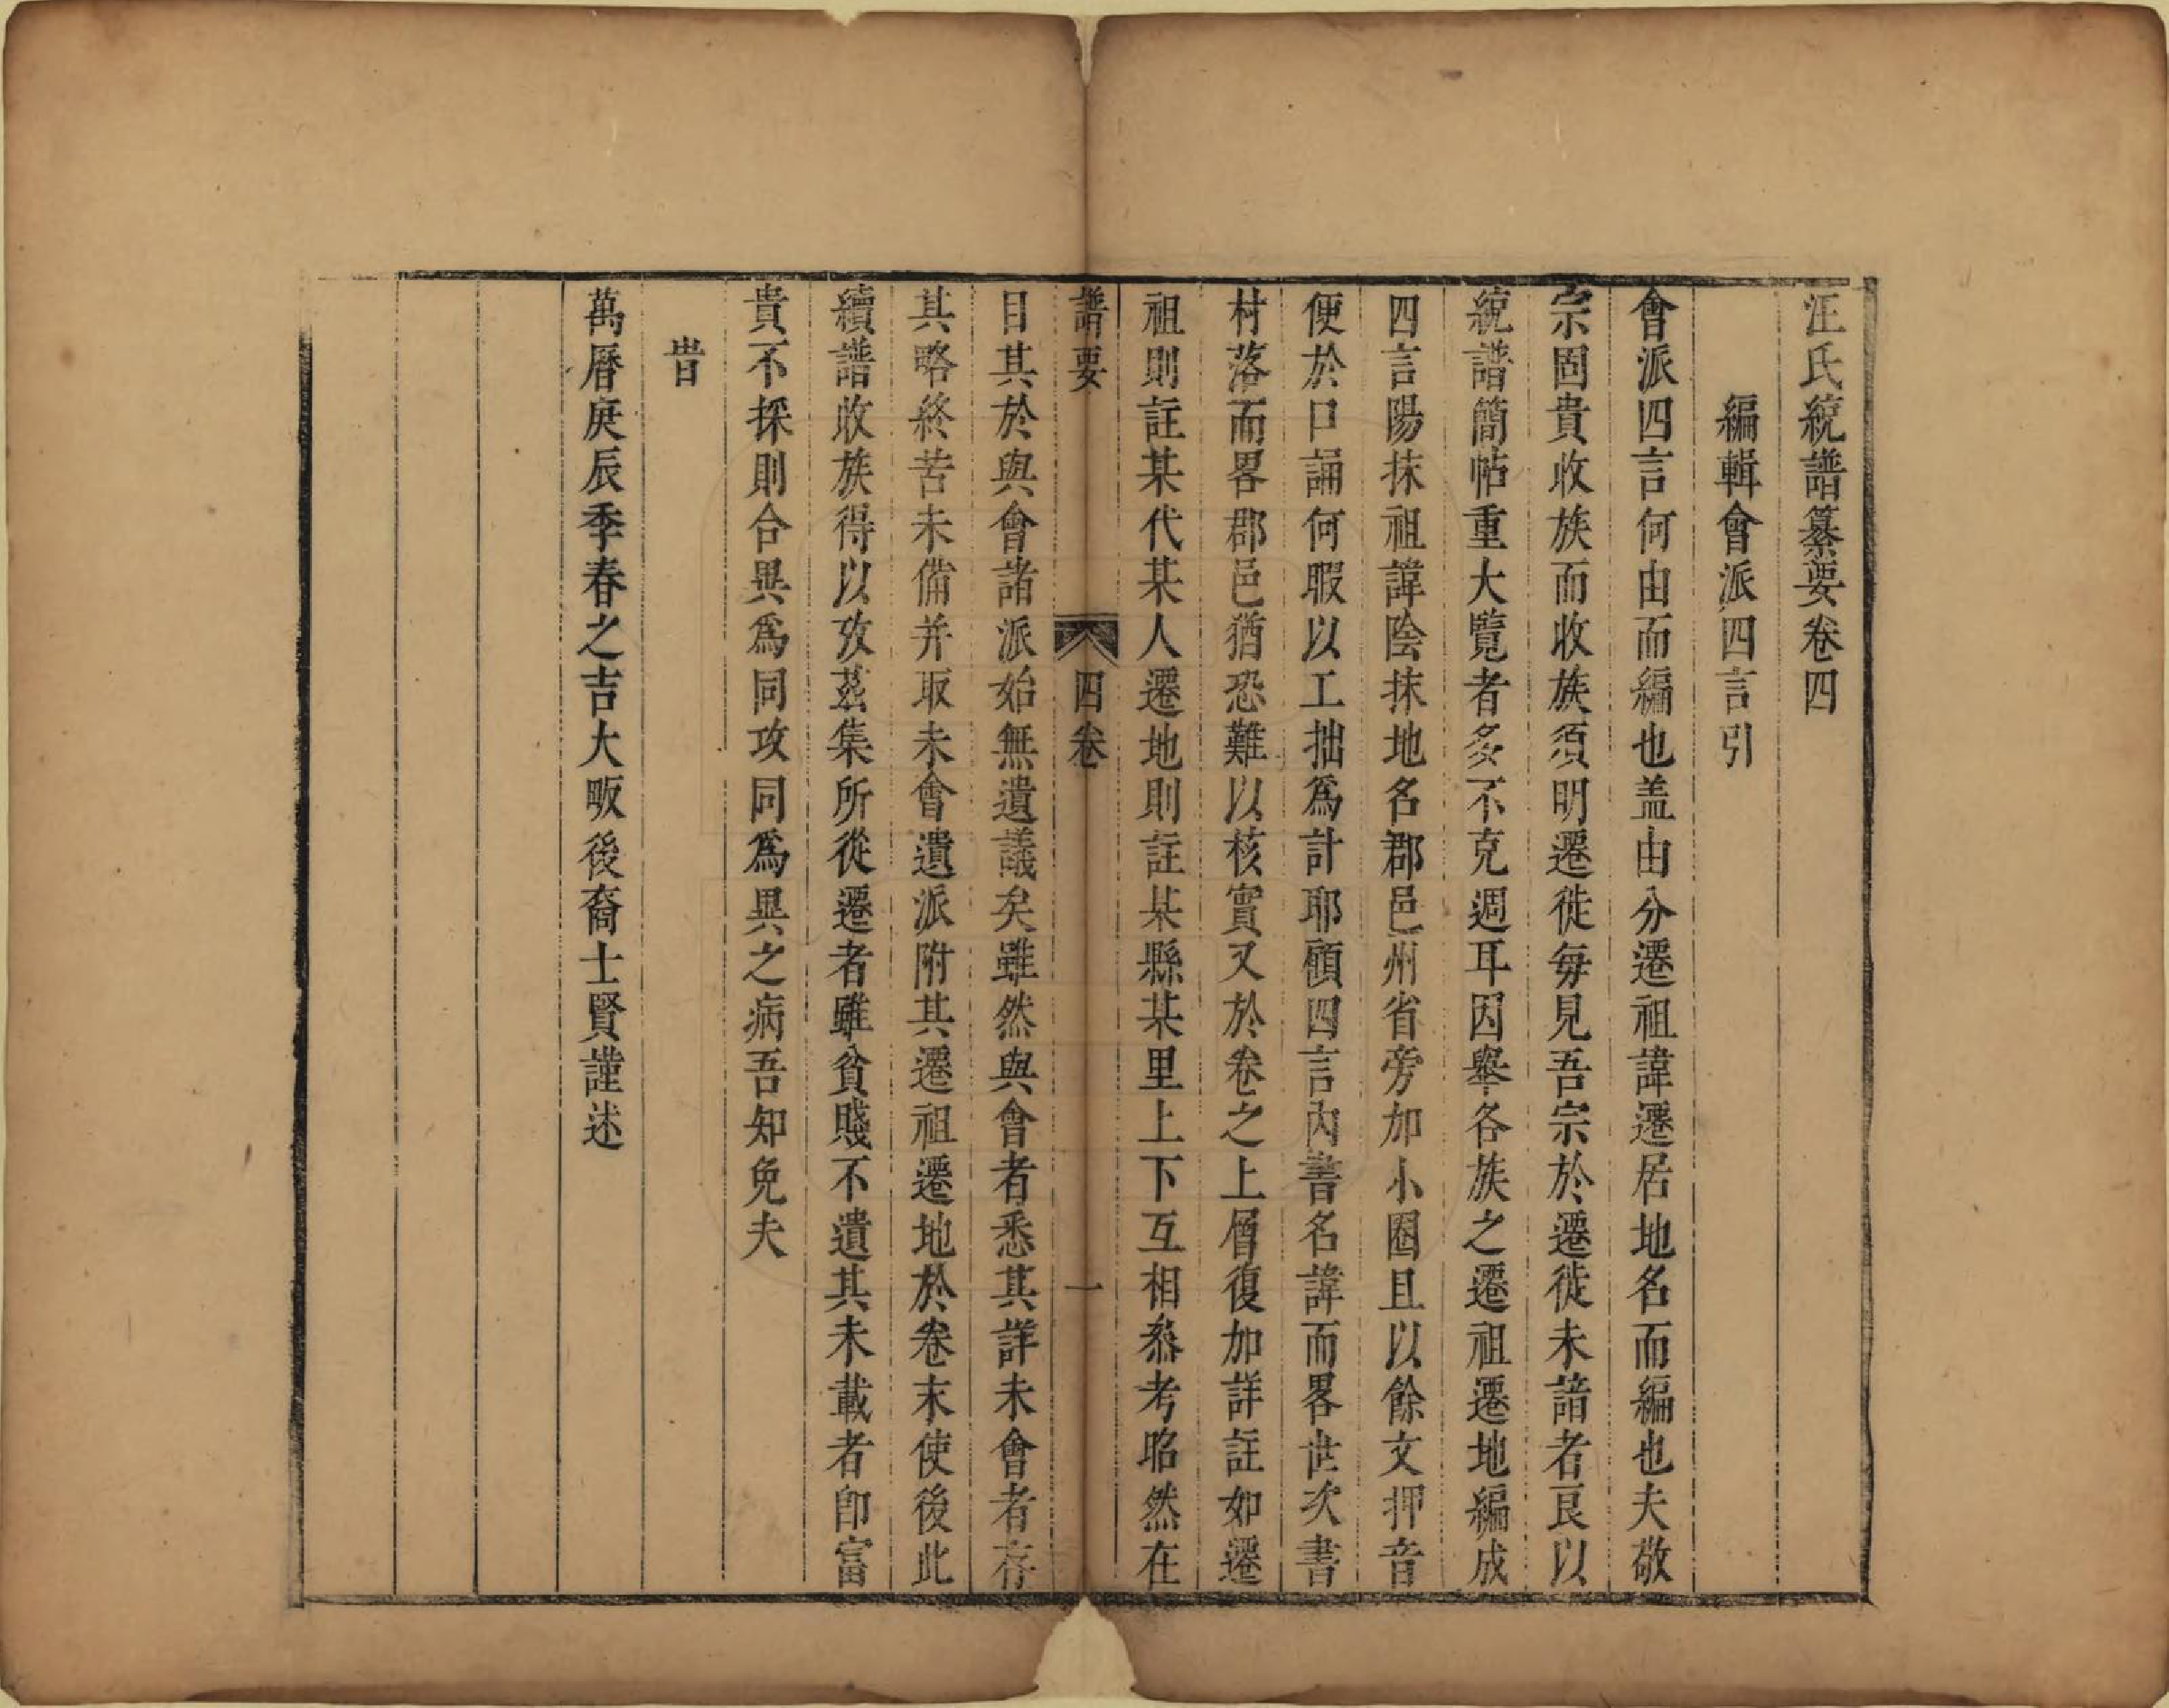 汪氏統譜纂要卷四
編輯會派四言引
會派四言何由而編也盖由分遷祖諱遷居地名而編也夫敬
宗固貴收族而收族須明遷徙每見吾宗於遷徙未諳者良以
統譜簡帖重大覽者多不克週耳因舉各族之遷祖遷地編成
四言陽抹祖諱陰抹地名郡邑州省旁加小圈且以餘文押音
便於口誦何暇以工拙爲計耶顧四言內書名諱而畧世次書
村落而畧郡邑猶恐難以核實又於卷之上層復加詳註如遷
祖則註某代某人遷地則註某縣某里上下互相叅考昭然在
譜要 四卷 一
目其於與會諸派始無遺議矣雖然與會者悉其詳未會者存
其略終苦未備并取未會遺派附其遷祖遷地於卷末使後此
續譜收族得以攷茲集所從遷者雖貧賤不遺其未載者卽富
貴不採則合異爲同攻同爲異之病吾知免夫
旹
萬曆庚辰季春之吉大畈後裔士賢謹述